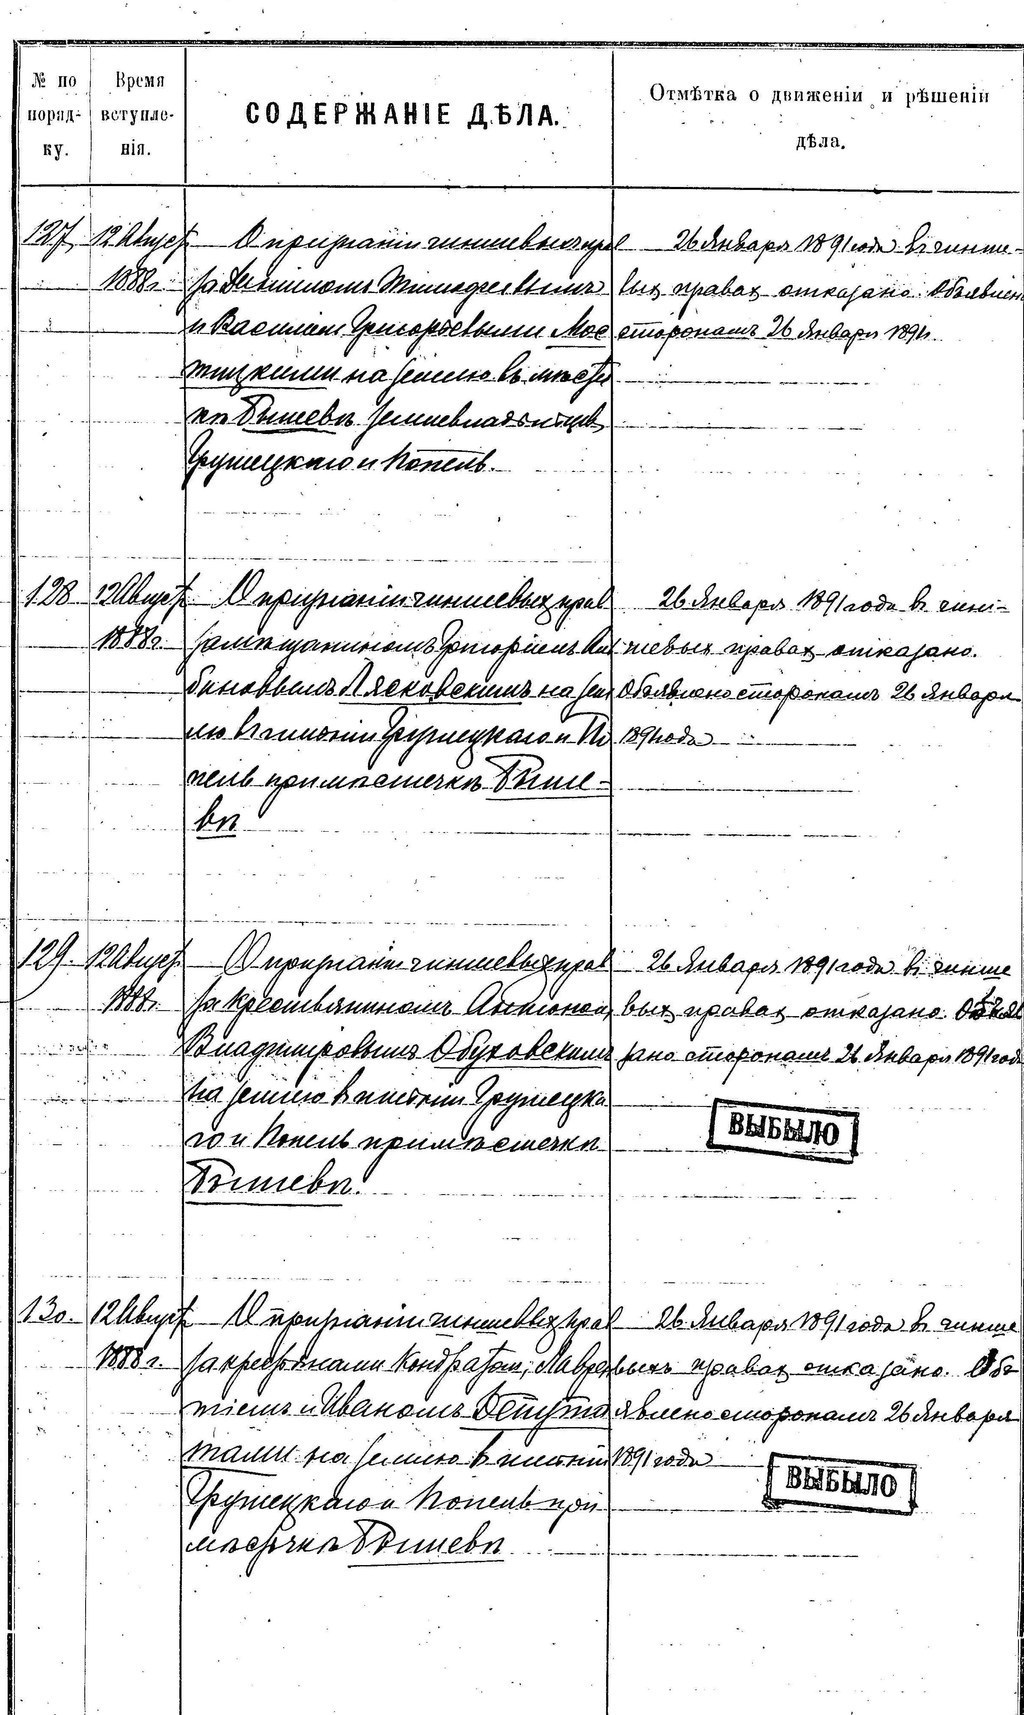 № по порядку.
Время вступленія.
СОДЕРЖАНІЕ ДѢЛА.
Отмѣтка о движеніи и рѣшеніи
дѣла.
127 12 Август
1888 г.
О признаніи чиншевыхъ прав
за Тимофеевымъ
и Василіем Григорьевыми Мос
тицкими на землю въ мѣстеч
кѣ Бышевѣ землевладѣльцев
Грушецкаго и Копель.
26 Января 1891 года въ чинше-
вых правах отказано. Объявлено
сторонамъ 26 Января 1891 г.
128 12 Август
1888 г.
О признаніи чиншевых прав
за мѣщаниномъ Григоріемъ
Лясковскимъ на зем
лю въ имѣніи Грушецкаго и Ко
пель при мѣстечкѣ Быше-
вѣ
26 Января 1891 года въ чинш-
шевых правах отказано.
Объявлено сторонамъ 26 Января
1891 года
129. 12 Август
1888 г.
О признаніи чиншевых прав
за крестьяниномъ Антоном
Владиміровымъ Обуховскимъ
на землю въ имѣніи Грушецка
го и Копель при мѣстечкѣ
Бышевѣ.
26 Января 1891 года въ чинше
вых правах отказано.
сторонамъ 26 Января 1891 года
ВЫБЫЛО
130. 12 Август
1888 г.
О признаніи чиншевых прав
за крестьянами Кондратом, Лавре
тіемъ и Иваномъ Депута
тами на землю въ имѣніи
Грушецкаго и Копель при
мѣстечкѣ Бышевѣ
26 Января 1891 года въ чинше
выхъ правах отказано. Объ
явлено сторонамъ 26 Января
1891 года
ВЫБЫЛО